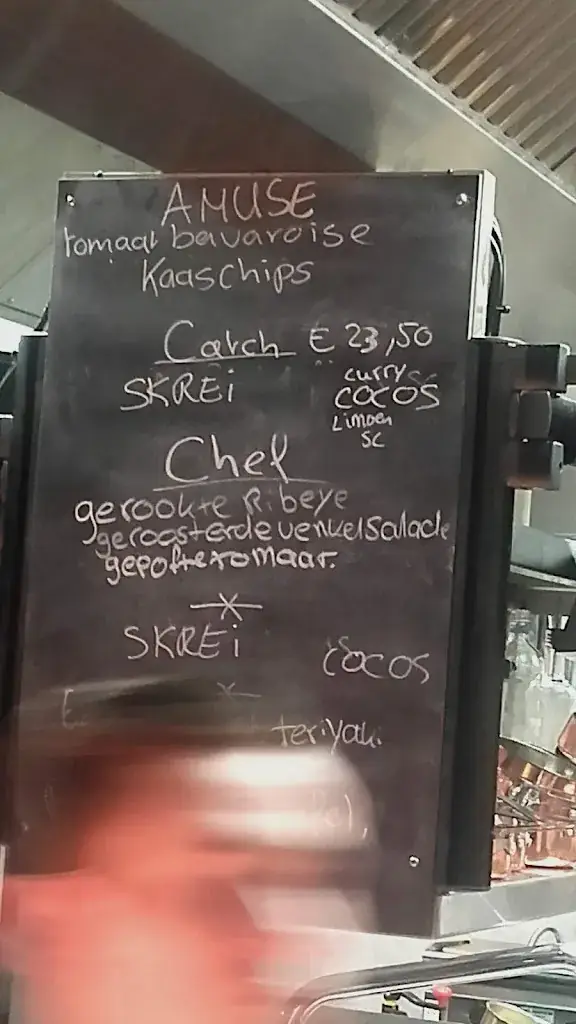 AMUSE
tomaat bavaroise
Kaaschips
Catch € 23,50
SKREi curry
cocos
Limoen
sc
Chef
gerookte Ribeye
geroosterde venkelsalade
gepofte tomaat.
SKREi cocos
teriyaki